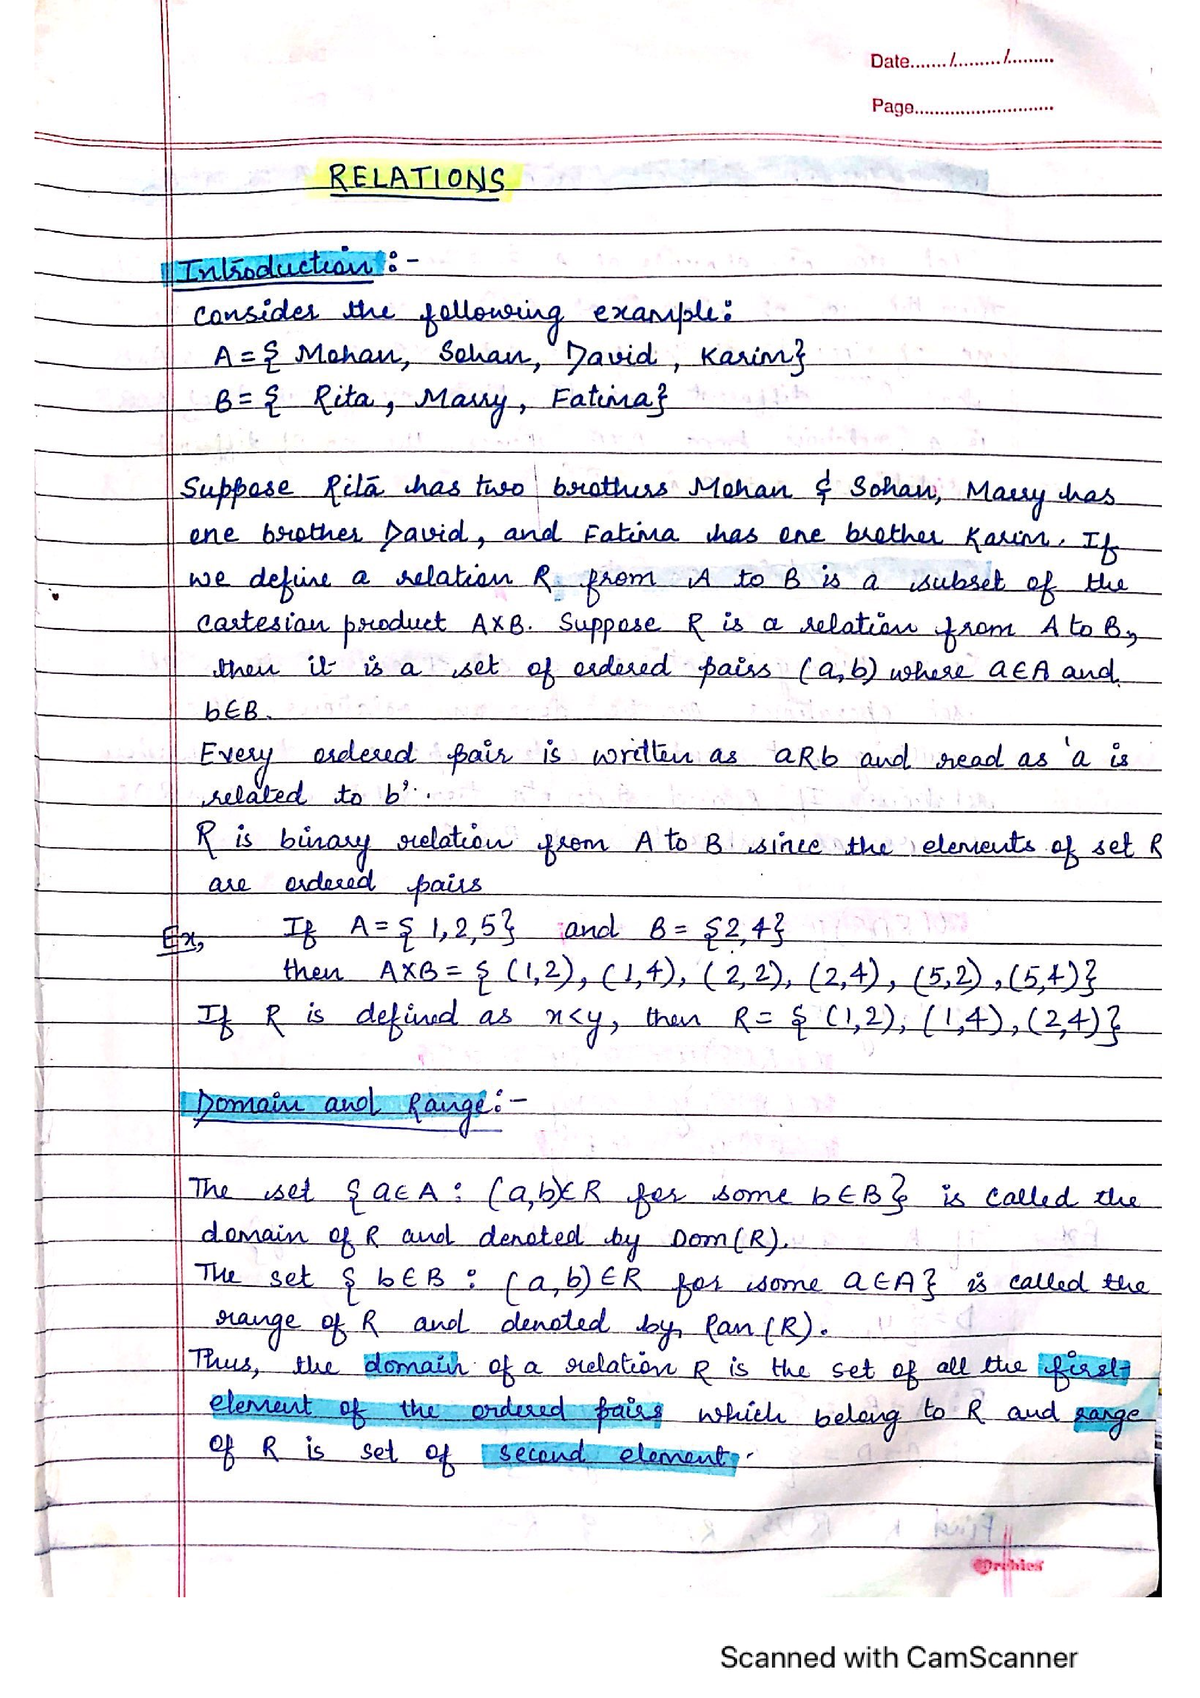 Date......./........./.........
Page............................
RELATIONS
Introduction :-
Consider the following example:
A = { Mohan, Sohan, David , Karim}
B = { Rita , Marry, Fatima}
Suppose Rita has two brothers Mohan & Sohan, Marry has
one brother David, and Fatima has one brother Karim. If
we define a relation R from A to B is a subset of the
cartesian product A×B. Suppose R is a relation from A to B,
then it is a set of ordered pairs (a,b) where a∈A and
b∈B.
Every ordered pair is written as aRb and read as 'a is
related to b'.
R is binary relation from A to B since the elements of set R
are ordered pairs
Ex, If A = { 1,2,5} and B = {2,4}
then A×B = { (1,2), (1,4), (2,2), (2,4), (5,2), (5,4)}
If R is defined as x<y, then R = { (1,2), (1,4), (2,4)}
Domain and Range:-
The set { a∈A : (a,b)∈R for some b∈B} is called the
domain of R and denoted by Dom(R).
The set { b∈B : (a,b)∈R for some a∈A} is called the
range of R and denoted by, Ran(R).
Thus, the domain of a relation R is the set of all the first
element of the ordered pairs which belong to R and range
of R is set of second element.
Archies
Scanned with CamScanner